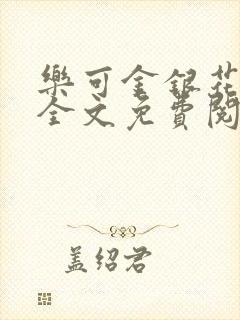 樂可金銀花
全文免費閱
盖绍君